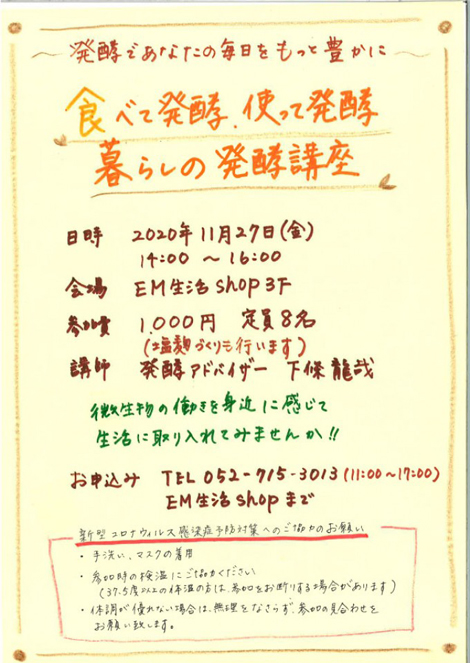 〜発酵であなたの毎日をもっと豊かに〜
食べて発酵、使って発酵
暮らしの発酵講座
日時 2020年11月27日(金)
14:00 〜 16:00
会場 EM生活shop3F
参加費 1,000円 定員8名
(塩麹づくりも行います)
講師 発酵アドバイザー 下條龍哉
微生物の働きを身近に感じて
生活に取り入れてみませんか!!
お申込み TEL 052-715-3013(11:00〜17:00)
EM生活shopまで
新型コロナウィルス感染症予防対策へのご協力のお願い
・手洗い、マスクの着用
・参加時の検温にご協力ください
(37.5度以上の体温の方は、参加をお断りする場合があります)
・体調が優れない場合は、無理をなさらず、参加の見合わせを
お願い致します。